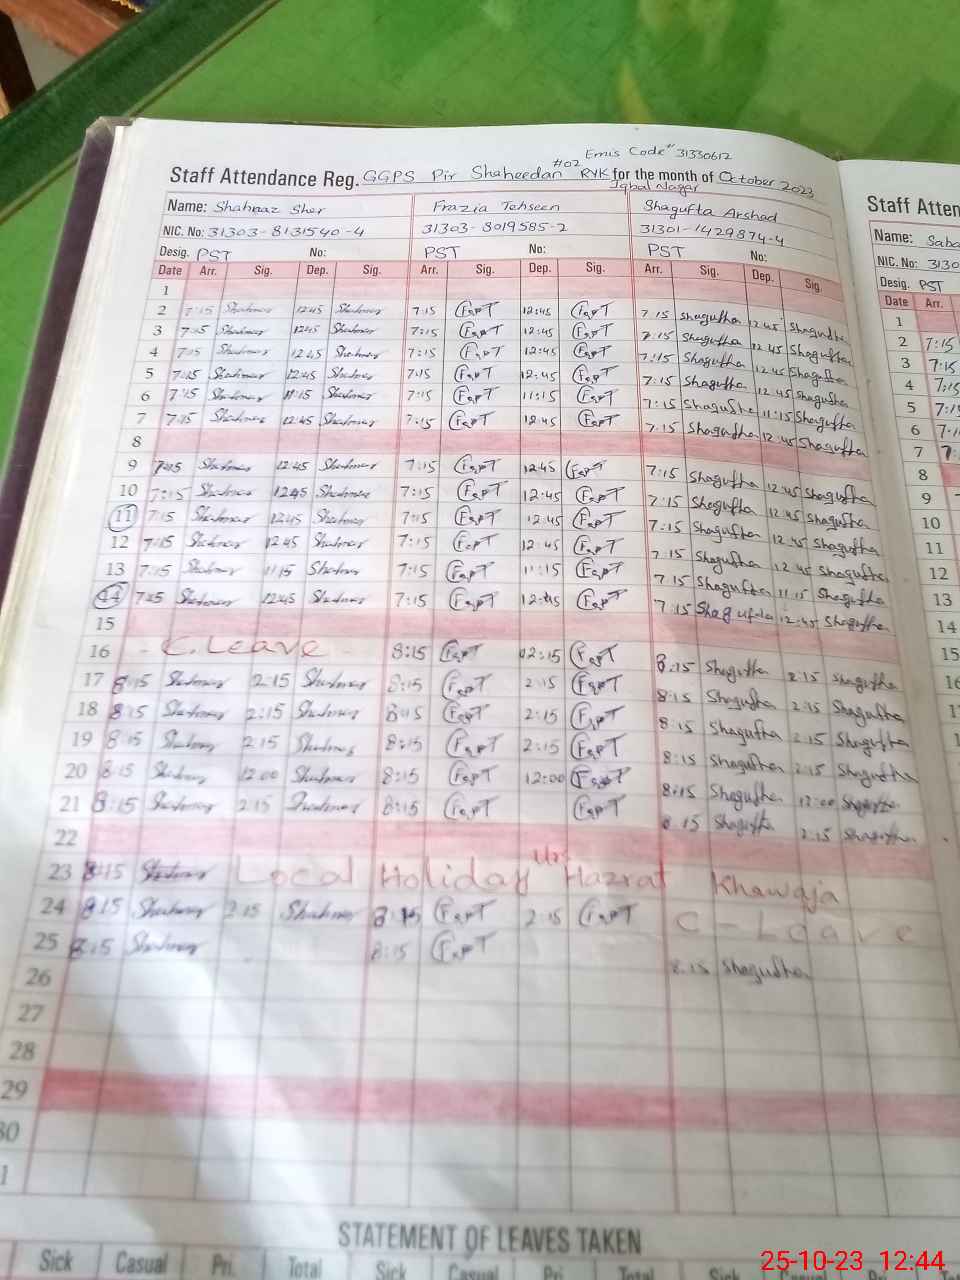 Emis Code# 31330612
Staff Attendance Reg. GGPS Pir Shaheedan #02 RYK for the month of October 2023
Iqbal Nagar
Name: Shahnaz Sher Frazia Tehseen Shagufta Arshad
NIC. No: 31303-8131540-4 31303-8019585-2 31301-1429874-4
Desig. PST No: PST No: PST No:
Date Arr. Sig. Dep. Sig. Arr. Sig. Dep. Sig. Arr. Sig. Dep. Sig.
1
2 7:15 Shahnaz 12:45 Shahnaz 7:15 12:45 7:15 Shagufta 12:45 Shagufta
3 7:15 Shahnaz 12:45 Shahnaz 7:15 12:45 7:15 Shagufta 12:45 Shagufta
4 7:15 Shahnaz 12:45 Shahnaz 7:15 12:45 7:15 Shagufta 12:45 Shagufta
5 7:15 Shahnaz 12:45 Shahnaz 7:15 12:45 7:15 Shagufta 12:45 Shagufta
6 7:15 Shahnaz 11:15 Shahnaz 7:15 11:15 7:15 Shagufta 11:15 Shagufta
7 7:15 Shahnaz 12:45 Shahnaz 7:15 12:45 7:15 Shagufta 12:45 Shagufta
8
9 7:15 Shahnaz 12:45 Shahnaz 7:15 12:45 7:15 Shagufta 12:45 Shagufta
10 7:15 Shahnaz 12:45 Shahnaz 7:15 12:45 7:15 Shagufta 12:45 Shagufta
11 7:15 Shahnaz 12:45 Shahnaz 7:15 12:45 7:15 Shagufta 12:45 Shagufta
12 7:15 Shahnaz 12:45 Shahnaz 7:15 12:45 7:15 Shagufta 12:45 Shagufta
13 7:15 Shahnaz 11:15 Shahnaz 7:15 11:15 7:15 Shagufta 11:15 Shagufta
14 7:15 Shahnaz 12:45 Shahnaz 7:15 12:45 7:15 Shagufta 12:45 Shagufta
15
16 - C. Leave - 8:15 02:15 8:15 Shagufta 2:15 Shagufta
17 8:15 Shahnaz 2:15 Shahnaz 8:15 2:15 8:15 Shagufta 2:15 Shagufta
18 8:15 Shahnaz 2:15 Shahnaz 8:15 2:15 8:15 Shagufta 2:15 Shagufta
19 8:15 Shahnaz 2:15 Shahnaz 8:15 2:15 8:15 Shagufta 2:15 Shagufta
20 8:15 Shahnaz 12:00 Shahnaz 8:15 12:00 8:15 Shagufta 12:00 Shagufta
21 8:15 Shahnaz 2:15 Shahnaz 8:15 8:15 Shagufta 2:15 Shagufta
22
23 8:15 Shahnaz Local Holiday Urs Hazrat Khawaja
24 8:15 Shahnaz 2:15 Shahnaz 8:15 2:15 C-Leave
25 8:15 Shahnaz 8:15 8:15 Shagufta
26
27
28
29
30
STATEMENT OF LEAVES TAKEN
Sick Casual Pri. Total Sick Casual Pri. Total
Staff Atten
Name: Saba
NIC. No: 3130
Desig. PST
Date Arr.
1
2 7:15
3 7:15
4 7:15
5
6
7
8
9
10
11
12
13
14
15
25-10-23 12:44